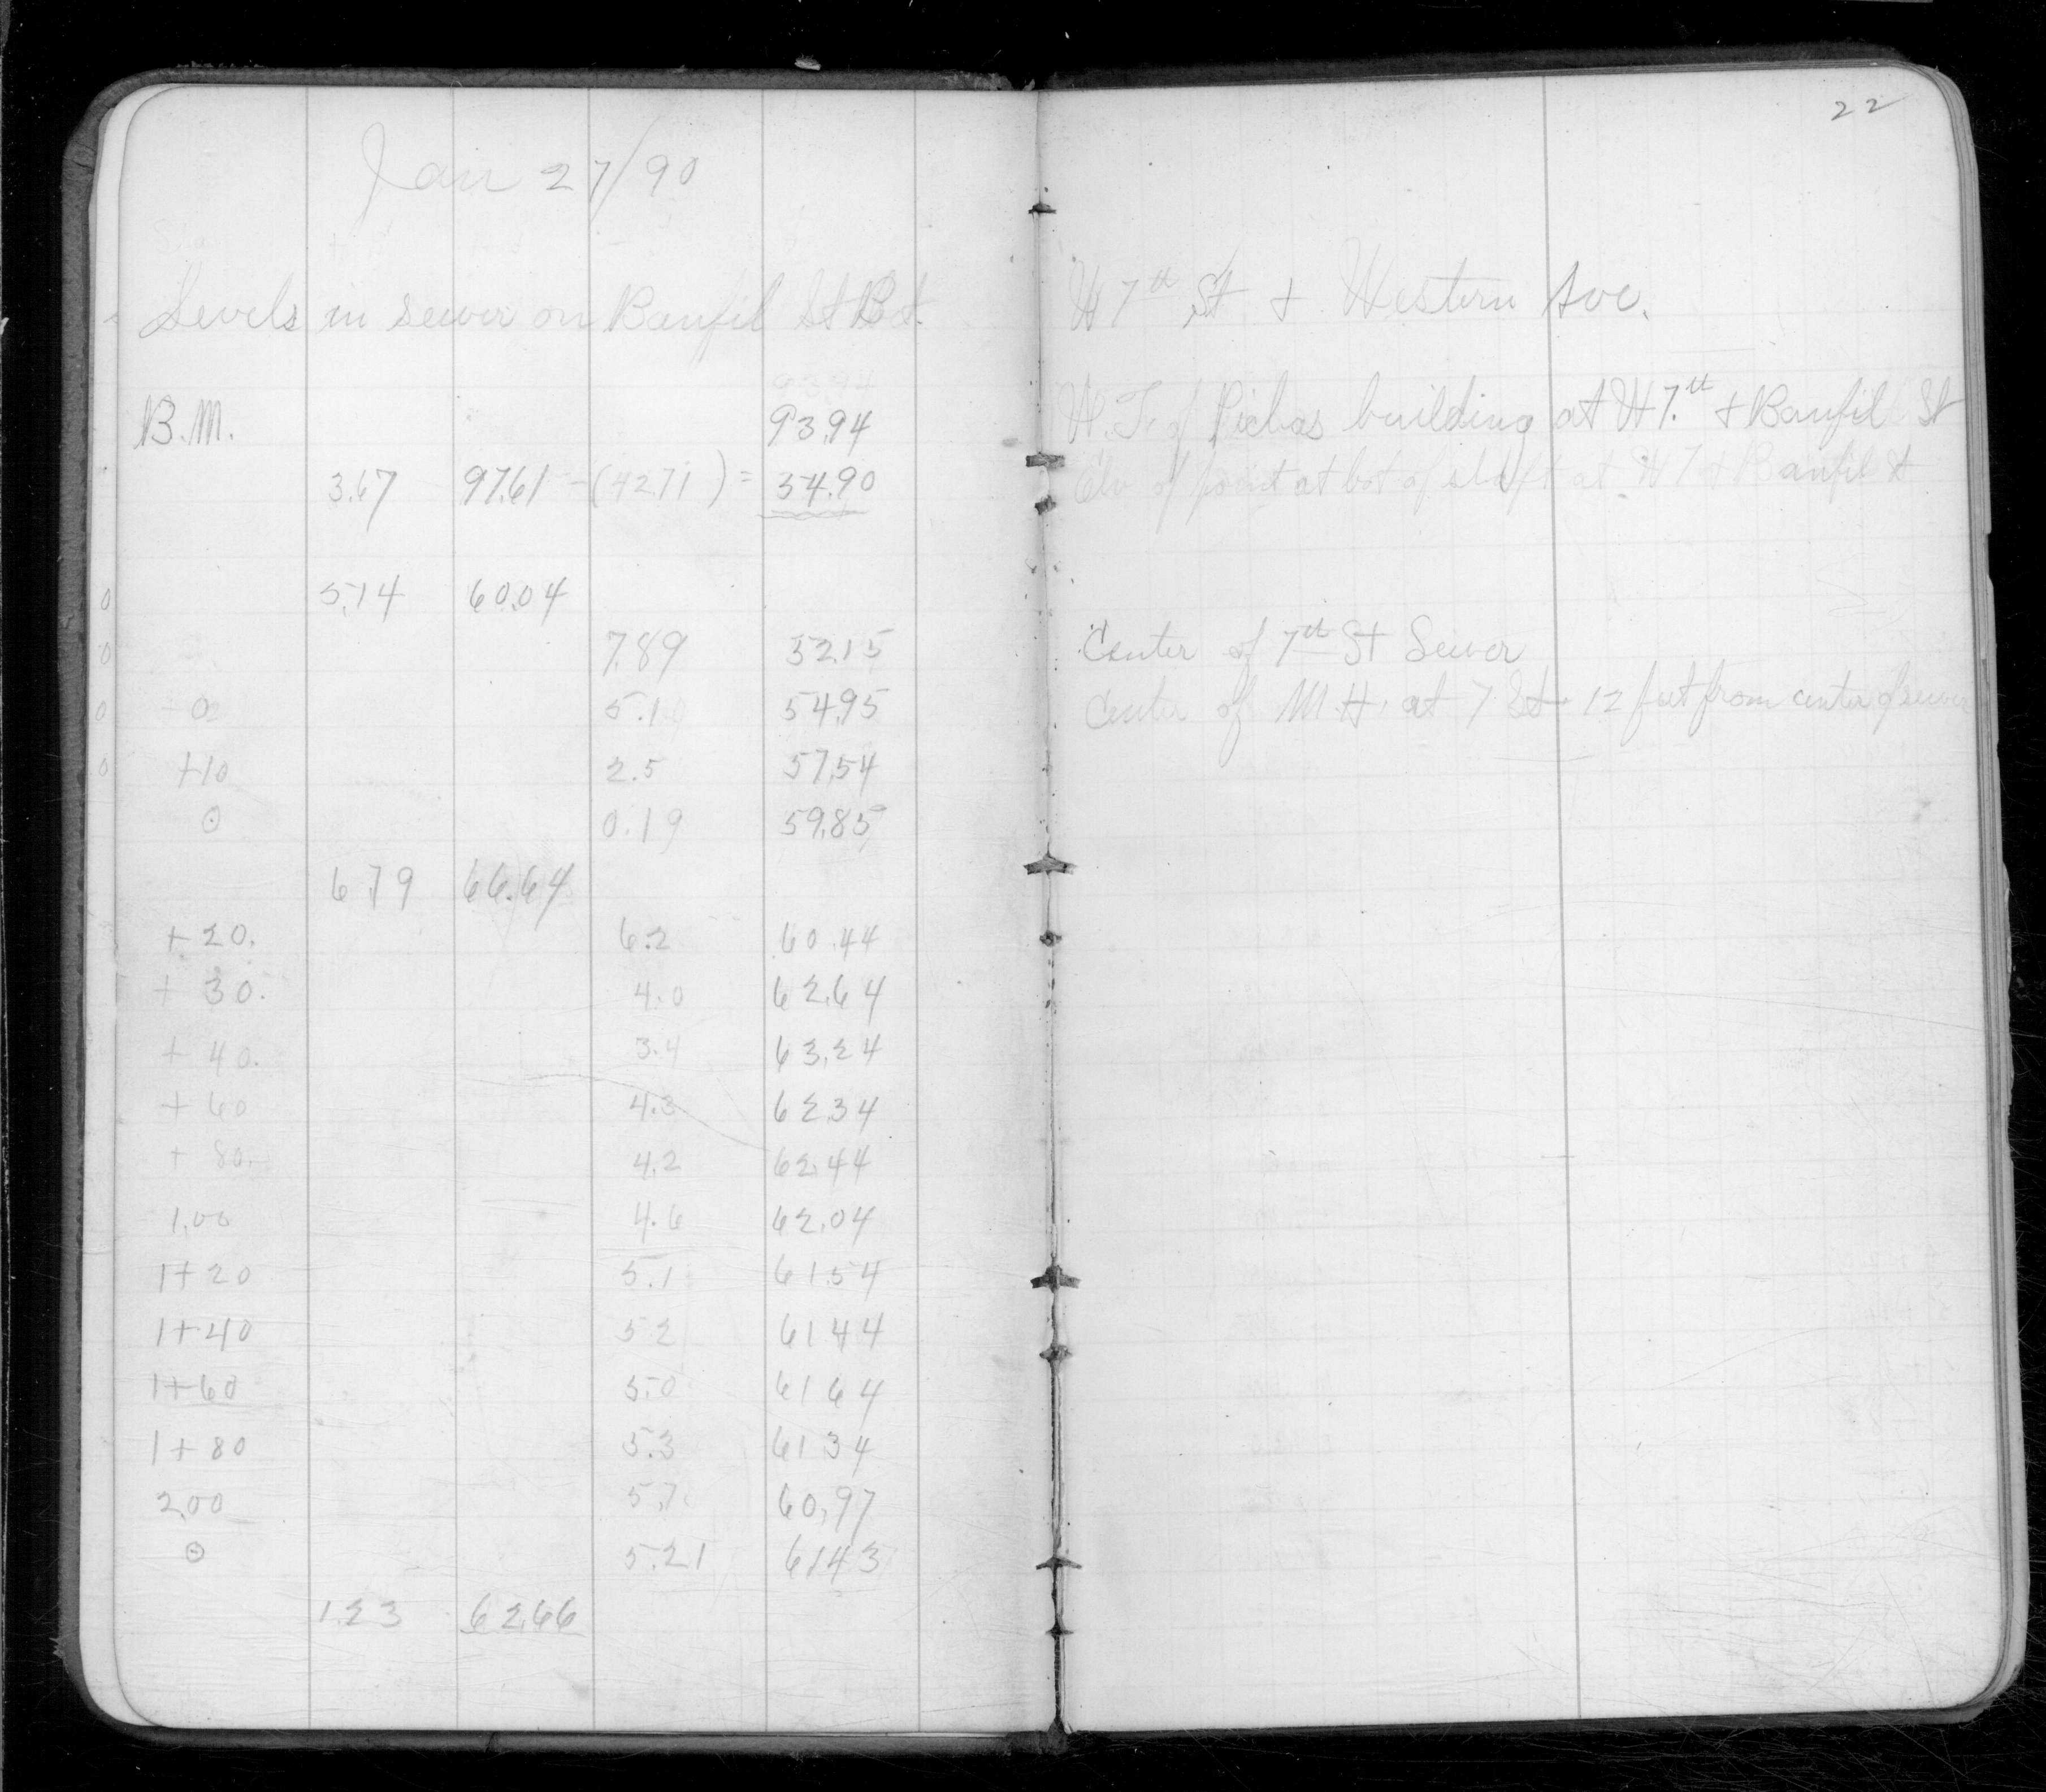 22
Jan 27/90
Sta +
Levels in sewer on Banfil St Bet. W 7th St + Western Ave.
93.94
B.M. 93.94 W.T. of building at W 7th + Banfil St
3.67 97.61 - (42.71) = 54.90 Elv of point at bot of shaft at W 7 + Banfil St
5.14 60.04
7.89 52.15 Center of 7th St Sewer
0 5.1 54.95 Center of M.H. at 7 St 12 feet from center of sewer
+10 2.5 57.54
⊙ 0.19 59.85
6.79 66.64
+ 20. 6.2 60.44
+ 30. 4.0 62.64
+ 40. 3.4 63.24
+ 60 4.3 62.34
+ 80. 4.2 62.44
1.00 4.6 62.04
1+20 5.1 61.54
1+40 5.2 61.44
1+60 5.0 61.64
1+80 5.3 61.34
2.00 5.7 60.97
⊙ 5.21 61.43
1.23 62.66